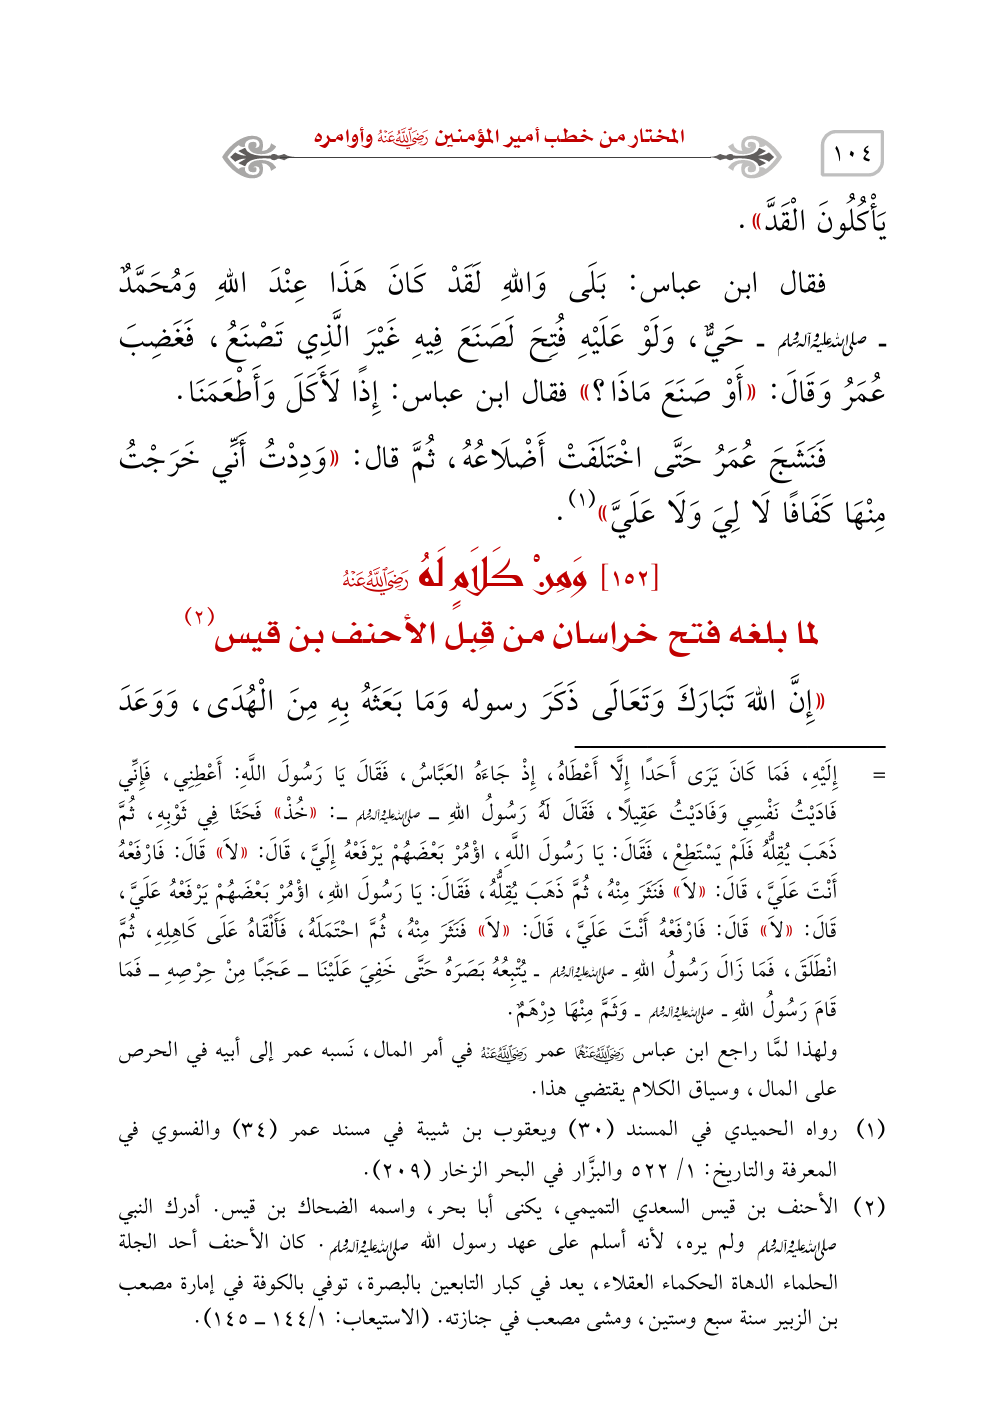 ١٠٤
المختار من خطب أمير المؤمنين رَضِيَ اللَّهُ عَنْهُ وأوامره
يَأْكُلُونَ الْقَدَّ».
فقال ابن عباس: بَلَى وَاللهِ لَقَدْ كَانَ هَذَا عِنْدَ اللهِ وَمُحَمَّدٌ
ـ صلى الله عليه وآله وسلم ـ حَيٌّ، وَلَوْ عَلَيْهِ فُتِحَ لَصَنَعَ فِيهِ غَيْرَ الَّذِي تَصْنَعُ، فَغَضِبَ
عُمَرُ وَقَالَ: «أَوْ صَنَعَ مَاذَا؟» فقال ابن عباس: إِذًا لَأَكَلَ وَأَطْعَمَنَا.
فَنَشَجَ عُمَرُ حَتَّى اخْتَلَفَتْ أَضْلَاعُهُ، ثُمَّ قال: «وَدِدْتُ أَنِّي خَرَجْتُ
مِنْهَا كَفَافًا لَا لِيَ وَلَا عَلَيَّ»(١).
[١٥٢] وَمِنْ كَلَامٍ لَهُ رَضِيَ اللَّهُ عَنْهُ
لما بلغه فتح خراسان من قِبل الأحنف بن قيس(٢)
«إِنَّ اللهَ تَبَارَكَ وَتَعَالَى ذَكَرَ رسوله وَمَا بَعَثَهُ بِهِ مِنَ الْهُدَى، وَوَعَدَ
= إِلَيْهِ، فَمَا كَانَ يَرَى أَحَدًا إِلَّا أَعْطَاهُ، إِذْ جَاءَهُ العَبَّاسُ، فَقَالَ يَا رَسُولَ اللَّهِ: أَعْطِنِي، فَإِنِّي
فَادَيْتُ نَفْسِي وَفَادَيْتُ عَقِيلًا، فَقَالَ لَهُ رَسُولُ اللهِ ـ صلى الله عليه وآله وسلم ـ: «خُذْ» فَحَثَا فِي ثَوْبِهِ، ثُمَّ
ذَهَبَ يُقِلُّهُ فَلَمْ يَسْتَطِعْ، فَقَالَ: يَا رَسُولَ اللَّهِ، اؤْمُرْ بَعْضَهُمْ يَرْفَعْهُ إِلَيَّ، قَالَ: «لاَ» قَالَ: فَارْفَعْهُ
أَنْتَ عَلَيَّ، قَالَ: «لاَ» فَنَثَرَ مِنْهُ، ثُمَّ ذَهَبَ يُقِلُّهُ، فَقَالَ: يَا رَسُولَ اللهِ، اؤْمُرْ بَعْضَهُمْ يَرْفَعْهُ عَلَيَّ،
قَالَ: «لاَ» قَالَ: فَارْفَعْهُ أَنْتَ عَلَيَّ، قَالَ: «لاَ» فَنَثَرَ مِنْهُ، ثُمَّ احْتَمَلَهُ، فَأَلْقَاهُ عَلَى كَاهِلِهِ، ثُمَّ
انْطَلَقَ، فَمَا زَالَ رَسُولُ اللهِ ـ صلى الله عليه وآله وسلم ـ يُتْبِعُهُ بَصَرَهُ حَتَّى خَفِيَ عَلَيْنَا ـ عَجَبًا مِنْ حِرْصِهِ ـ فَمَا
قَامَ رَسُولُ اللهِ ـ صلى الله عليه وآله وسلم ـ وَثَمَّ مِنْهَا دِرْهَمٌ.
ولهذا لمَّا راجع ابن عباس رَضِيَ اللَّهُ عَنْهُمَا عمر رَضِيَ اللَّهُ عَنْهُ في أمر المال، نَسبه عمر إلى أبيه في الحرص
على المال، وسياق الكلام يقتضي هذا.
(١) رواه الحميدي في المسند (٣٠) ويعقوب بن شيبة في مسند عمر (٣٤) والفسوي في
المعرفة والتاريخ: ١/ ٥٢٢ والبزَّار في البحر الزخار (٢٠٩).
(٢) الأحنف بن قيس السعدي التميمي، يكنى أبا بحر، واسمه الضحاك بن قيس. أدرك النبي
صلى الله عليه وآله وسلم ولم يره، لأنه أسلم على عهد رسول الله صلى الله عليه وآله وسلم. كان الأحنف أحد الجلة
الحلماء الدهاة الحكماء العقلاء، يعد في كبار التابعين بالبصرة، توفي بالكوفة في إمارة مصعب
بن الزبير سنة سبع وستين، ومشى مصعب في جنازته. (الاستيعاب: ١/١٤٤ ـ ١٤٥).